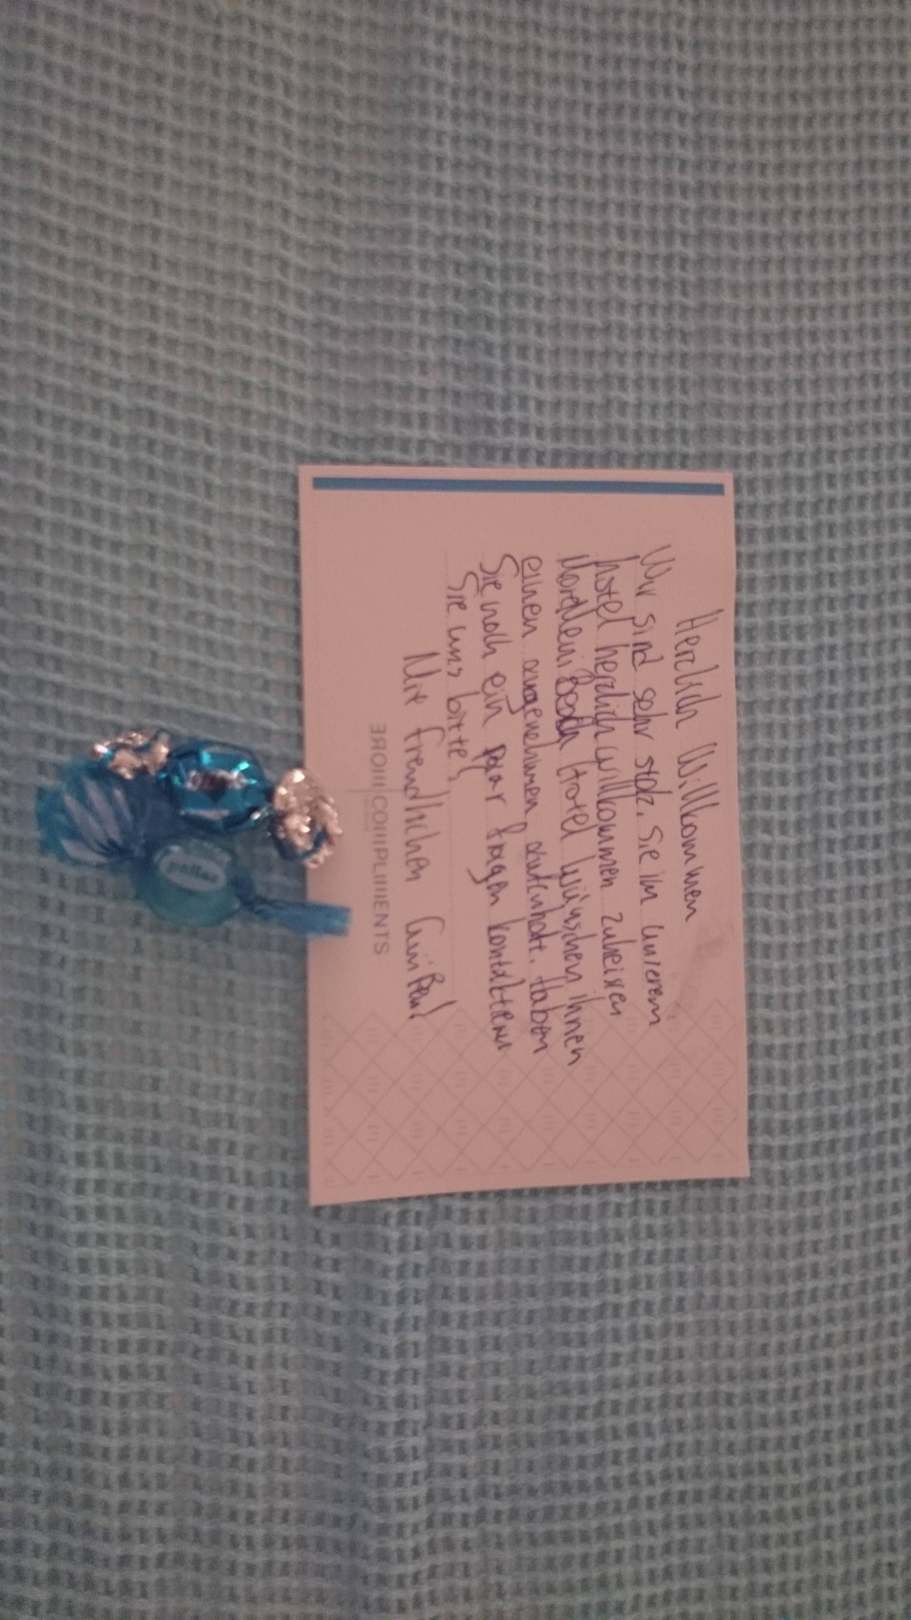 Herzlich Willkommen
Wir sind sehr stolz, Sie im unserem
hotel herzlich willkommen zuheisen
Beach Hotel wünschen ihnen
einen angenehmen aufenhalt. haben
Sie noch ein paar fragen kontaktieren
Sie uns bitte!
Mit freundlichen Grüßen!
MORE COMPLIMENTS